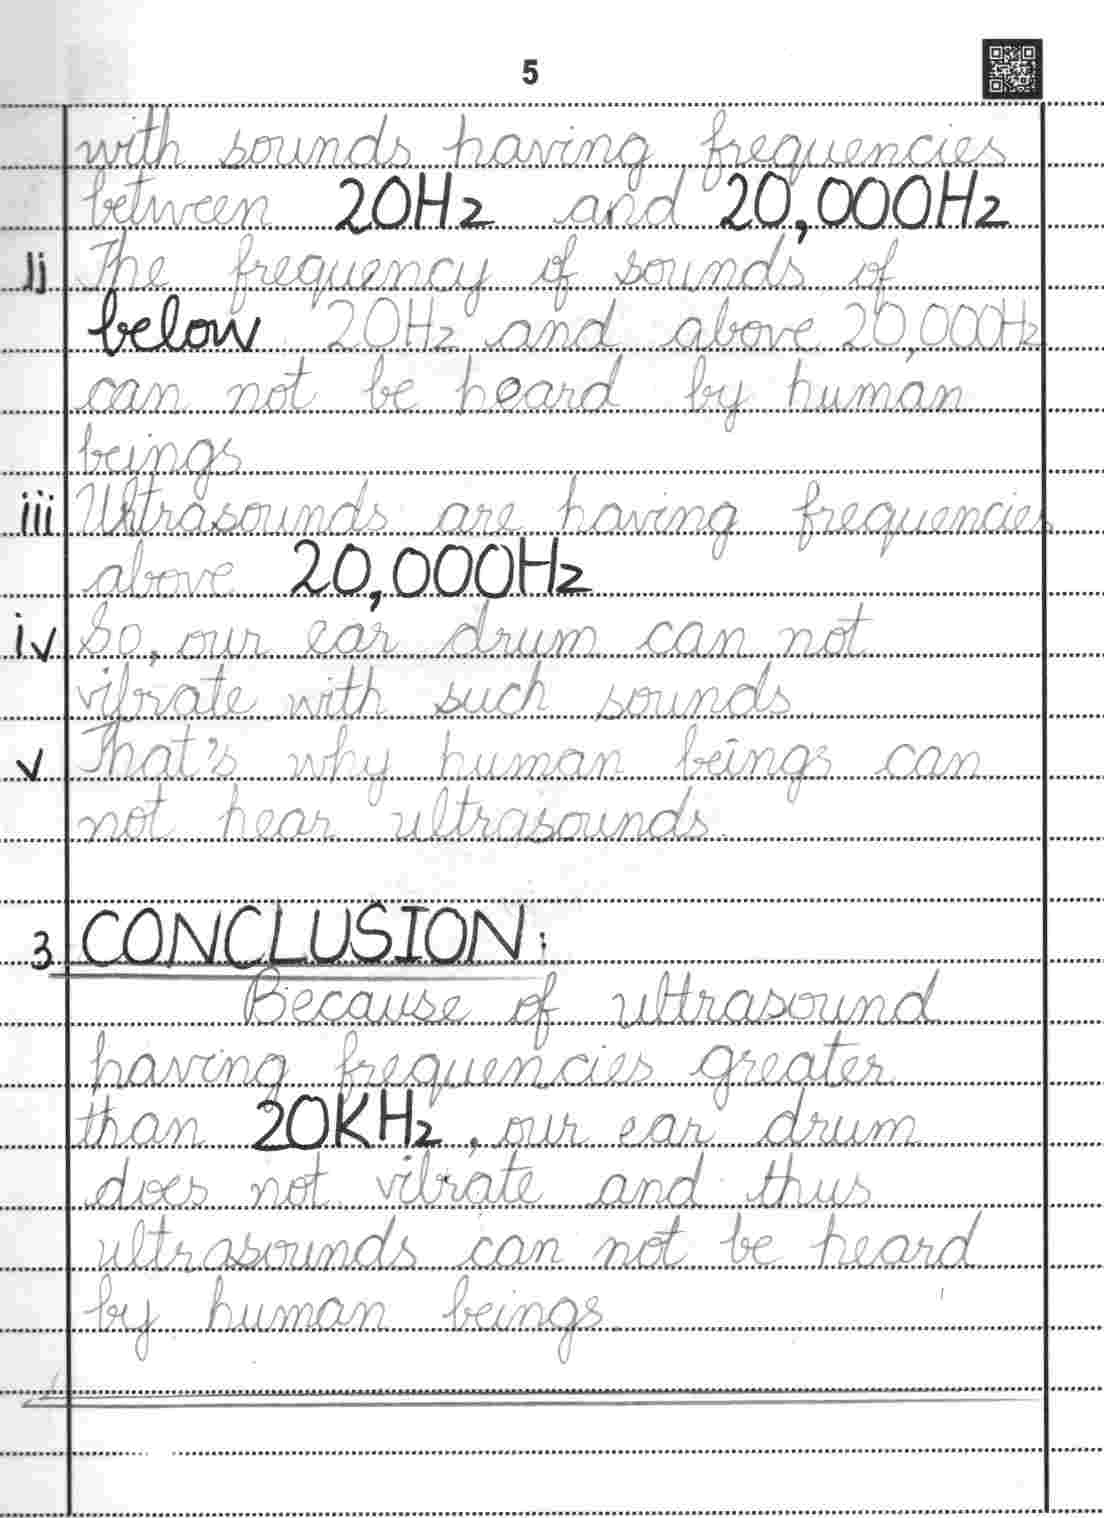 5
with sounds having frequencies
between 20Hz and 20,000Hz
ii The frequency of sounds of
below 20Hz and above 20,000Hz
can not be heard by human
beings
iii Ultrasounds are having frequencies
above 20,000Hz
iv So, our ear drum can not
vibrate with such sounds
v That's why human beings can
not hear ultrasounds.
3 CONCLUSION:
Because of ultrasound
having frequencies greater
than 20KHz, our ear drum
does not vibrate and thus
ultrasounds can not be heard
by human beings.